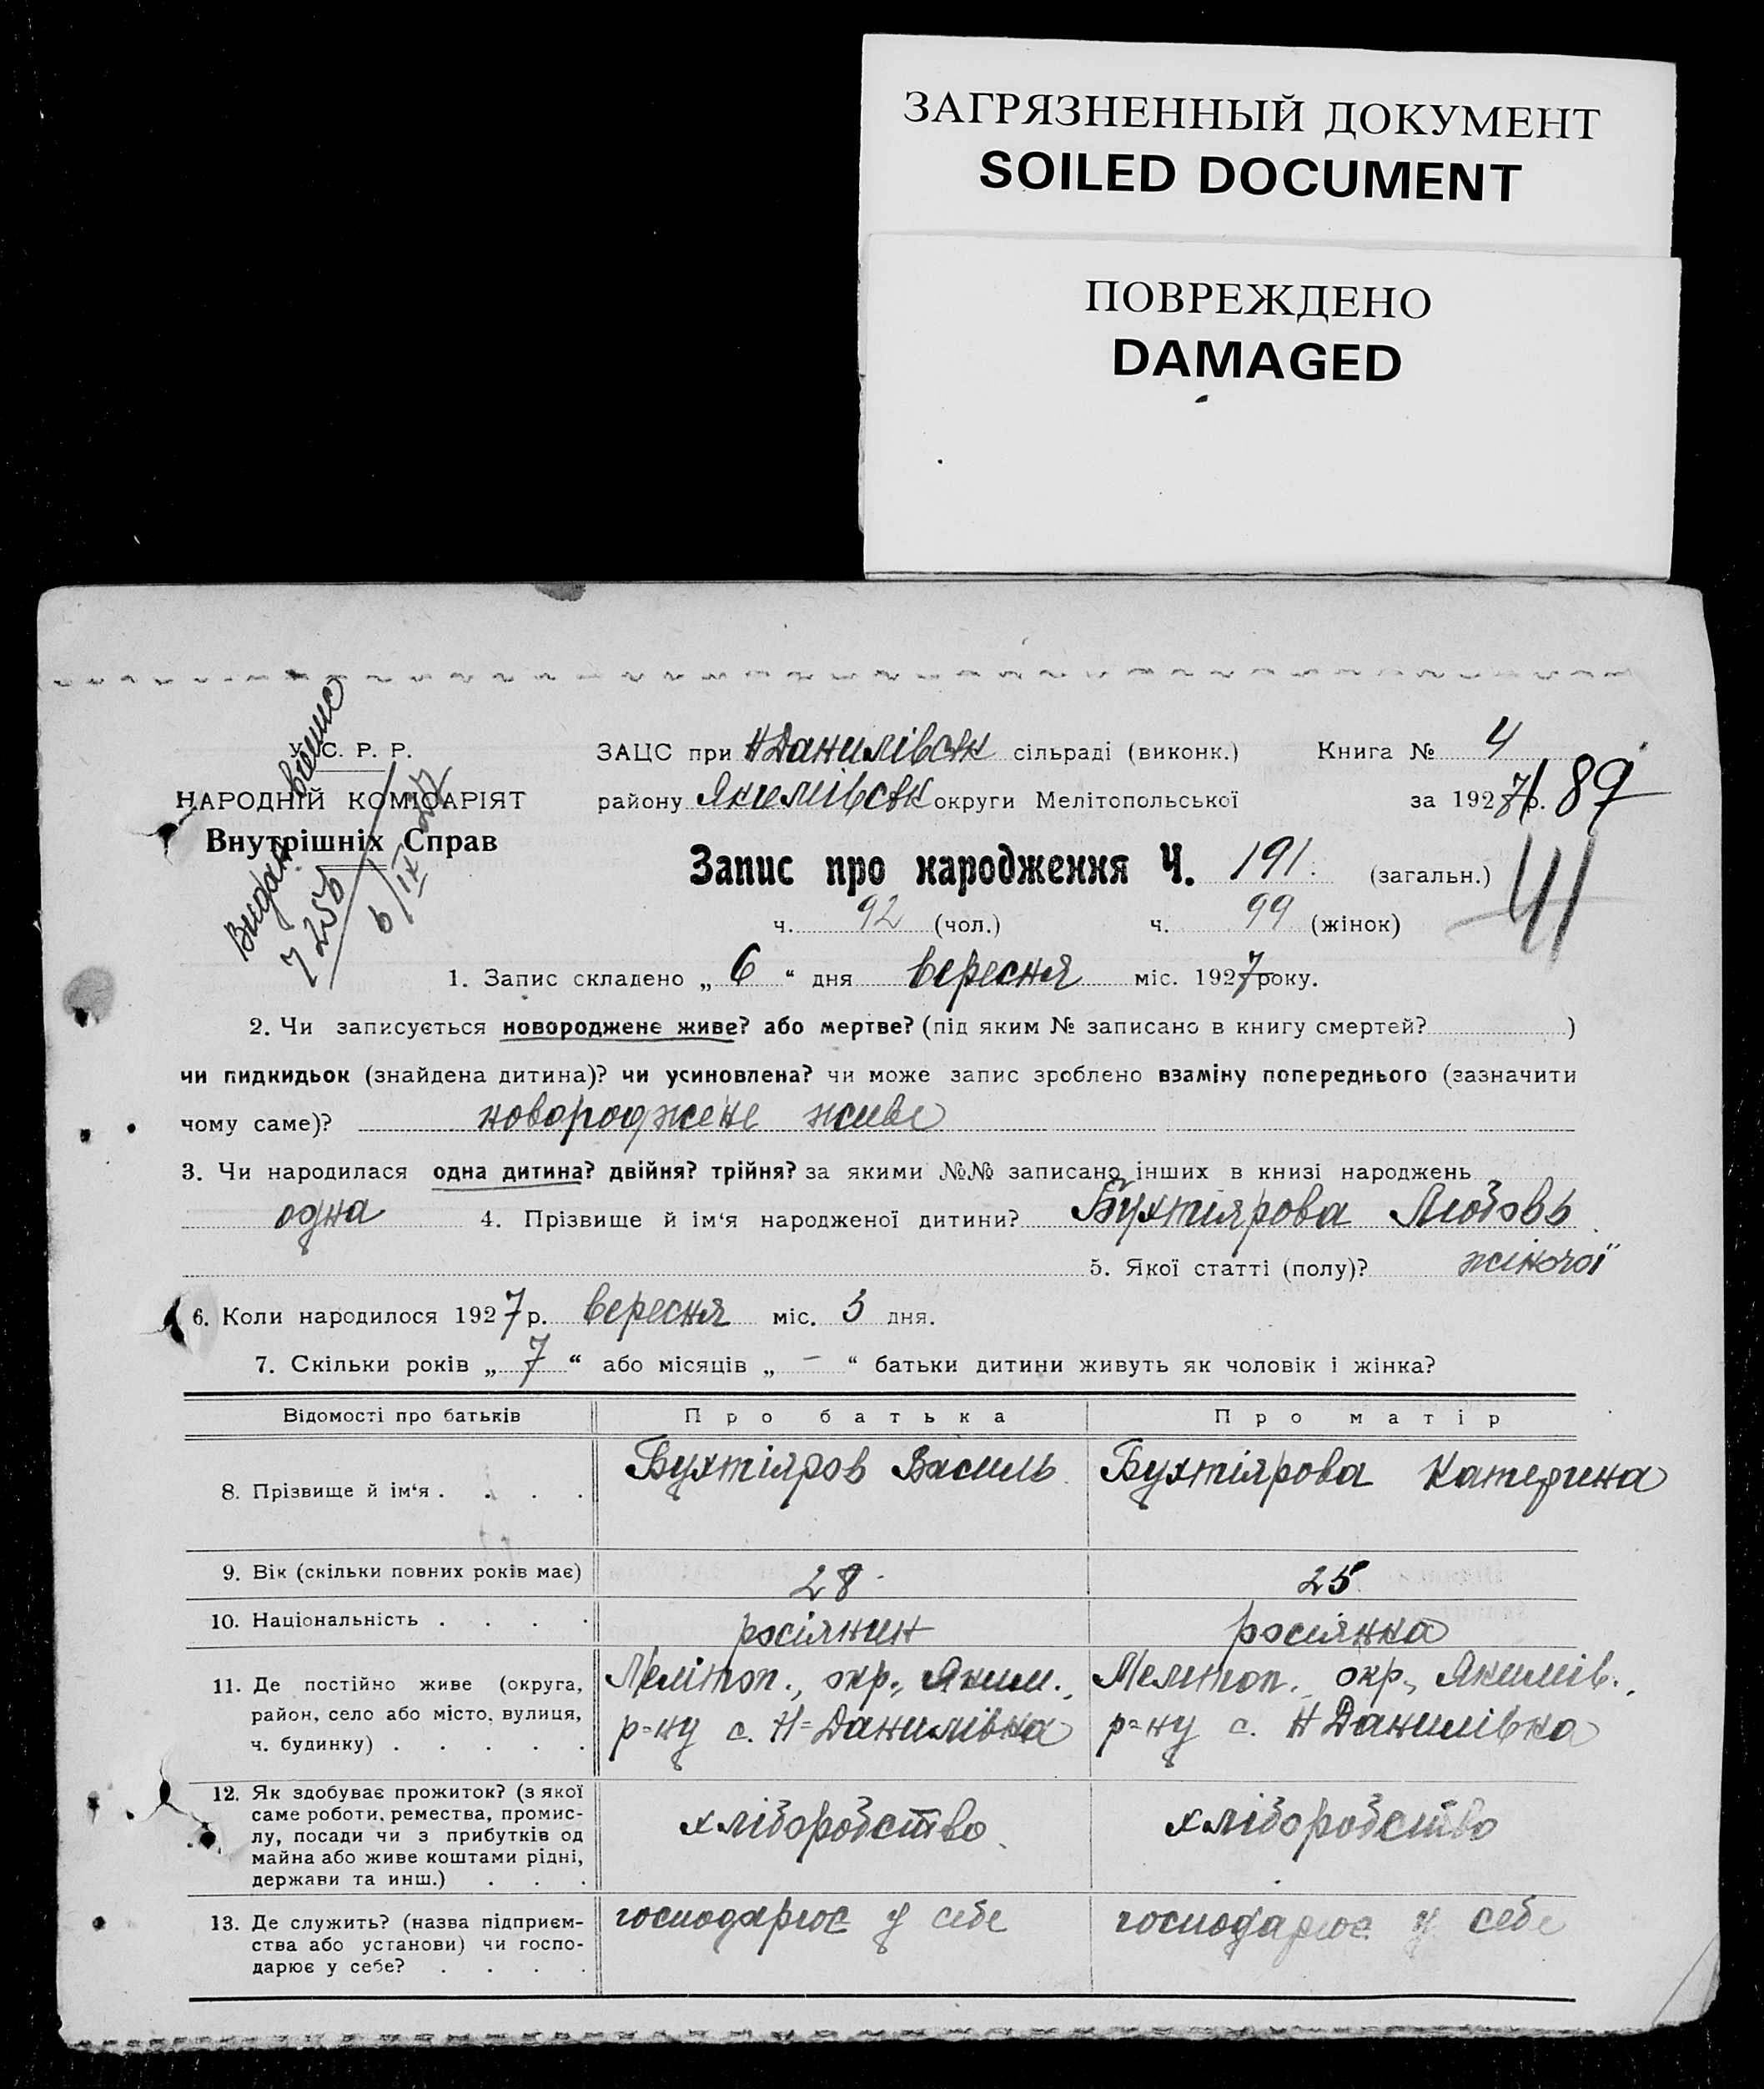 ЗАГРЯЗНЕННЫЙ ДОКУМЕНТ
SOILED DOCUMENT
ПОВРЕЖДЕНО
DAMAGED
У. С. Р. Р.
НАРОДНІЙ КОМІСАРІЯТ
Внутрішніх Справ
ЗАЦС при Н Данилівськ сільраді (виконк.)
району Якимівськ округи Мелітопольської
Книга № 4
за 1927 р. 89
Запис про народження Ч. 191. (загальн.)
41
ч. 92 (чол.) ч. 99 (жінок)
1. Запис складено „ 6 “ дня вересня міс. 1927 року.
2. Чи записується новороджене живе? або мертве? (під яким № записано в книгу смертей? )
чи пидкидьок (знайдена дитина)? чи усиновлена? чи може запис зроблено взаміну попереднього (зазначити
чому саме)? новороджене живе
3. Чи народилася одна дитина? двійня? трійня? за якими №№ записано інших в книзі народжень
одна 4. Прізвище й ім‘я народженої дитини? Бухтіярова Любовь
5. Якої статті (полу)? жіночої
6. Коли народилося 1927 р. вересня міс. 3 дня.
7. Скільки років „ 7 “ або місяців „ – “ батьки дитини живуть як чоловік і жінка?
Відомості про батьків Про батька Про матір
8. Прізвище й ім‘я . . . . Бухтіяров Василь Бухтіярова Катерина
9. Вік (скільки повних років має) 28 25
10. Національність . . . . росіянин росіянка
11. Де постійно живе (округа, Меліток., окр., Яким., Мелітоп., окр., Якимів.,
район, село або місто, вулиця, р=ну с. Н=Данилівка р=ну с. Н Данилівка
ч. будинку) . . . . .
12. Як здобуває прожиток? (з якої
саме роботи, ремества, промис-
лу, посади чи з прибутків од хліборобство хліборобство
майна або живе коштами рідні,
держави та инш.) . . .
13. Де служить? (назва підприєм- господарює у себе господарює у себе
ства або установи) чи госпо-
дарює у себе? . . . .